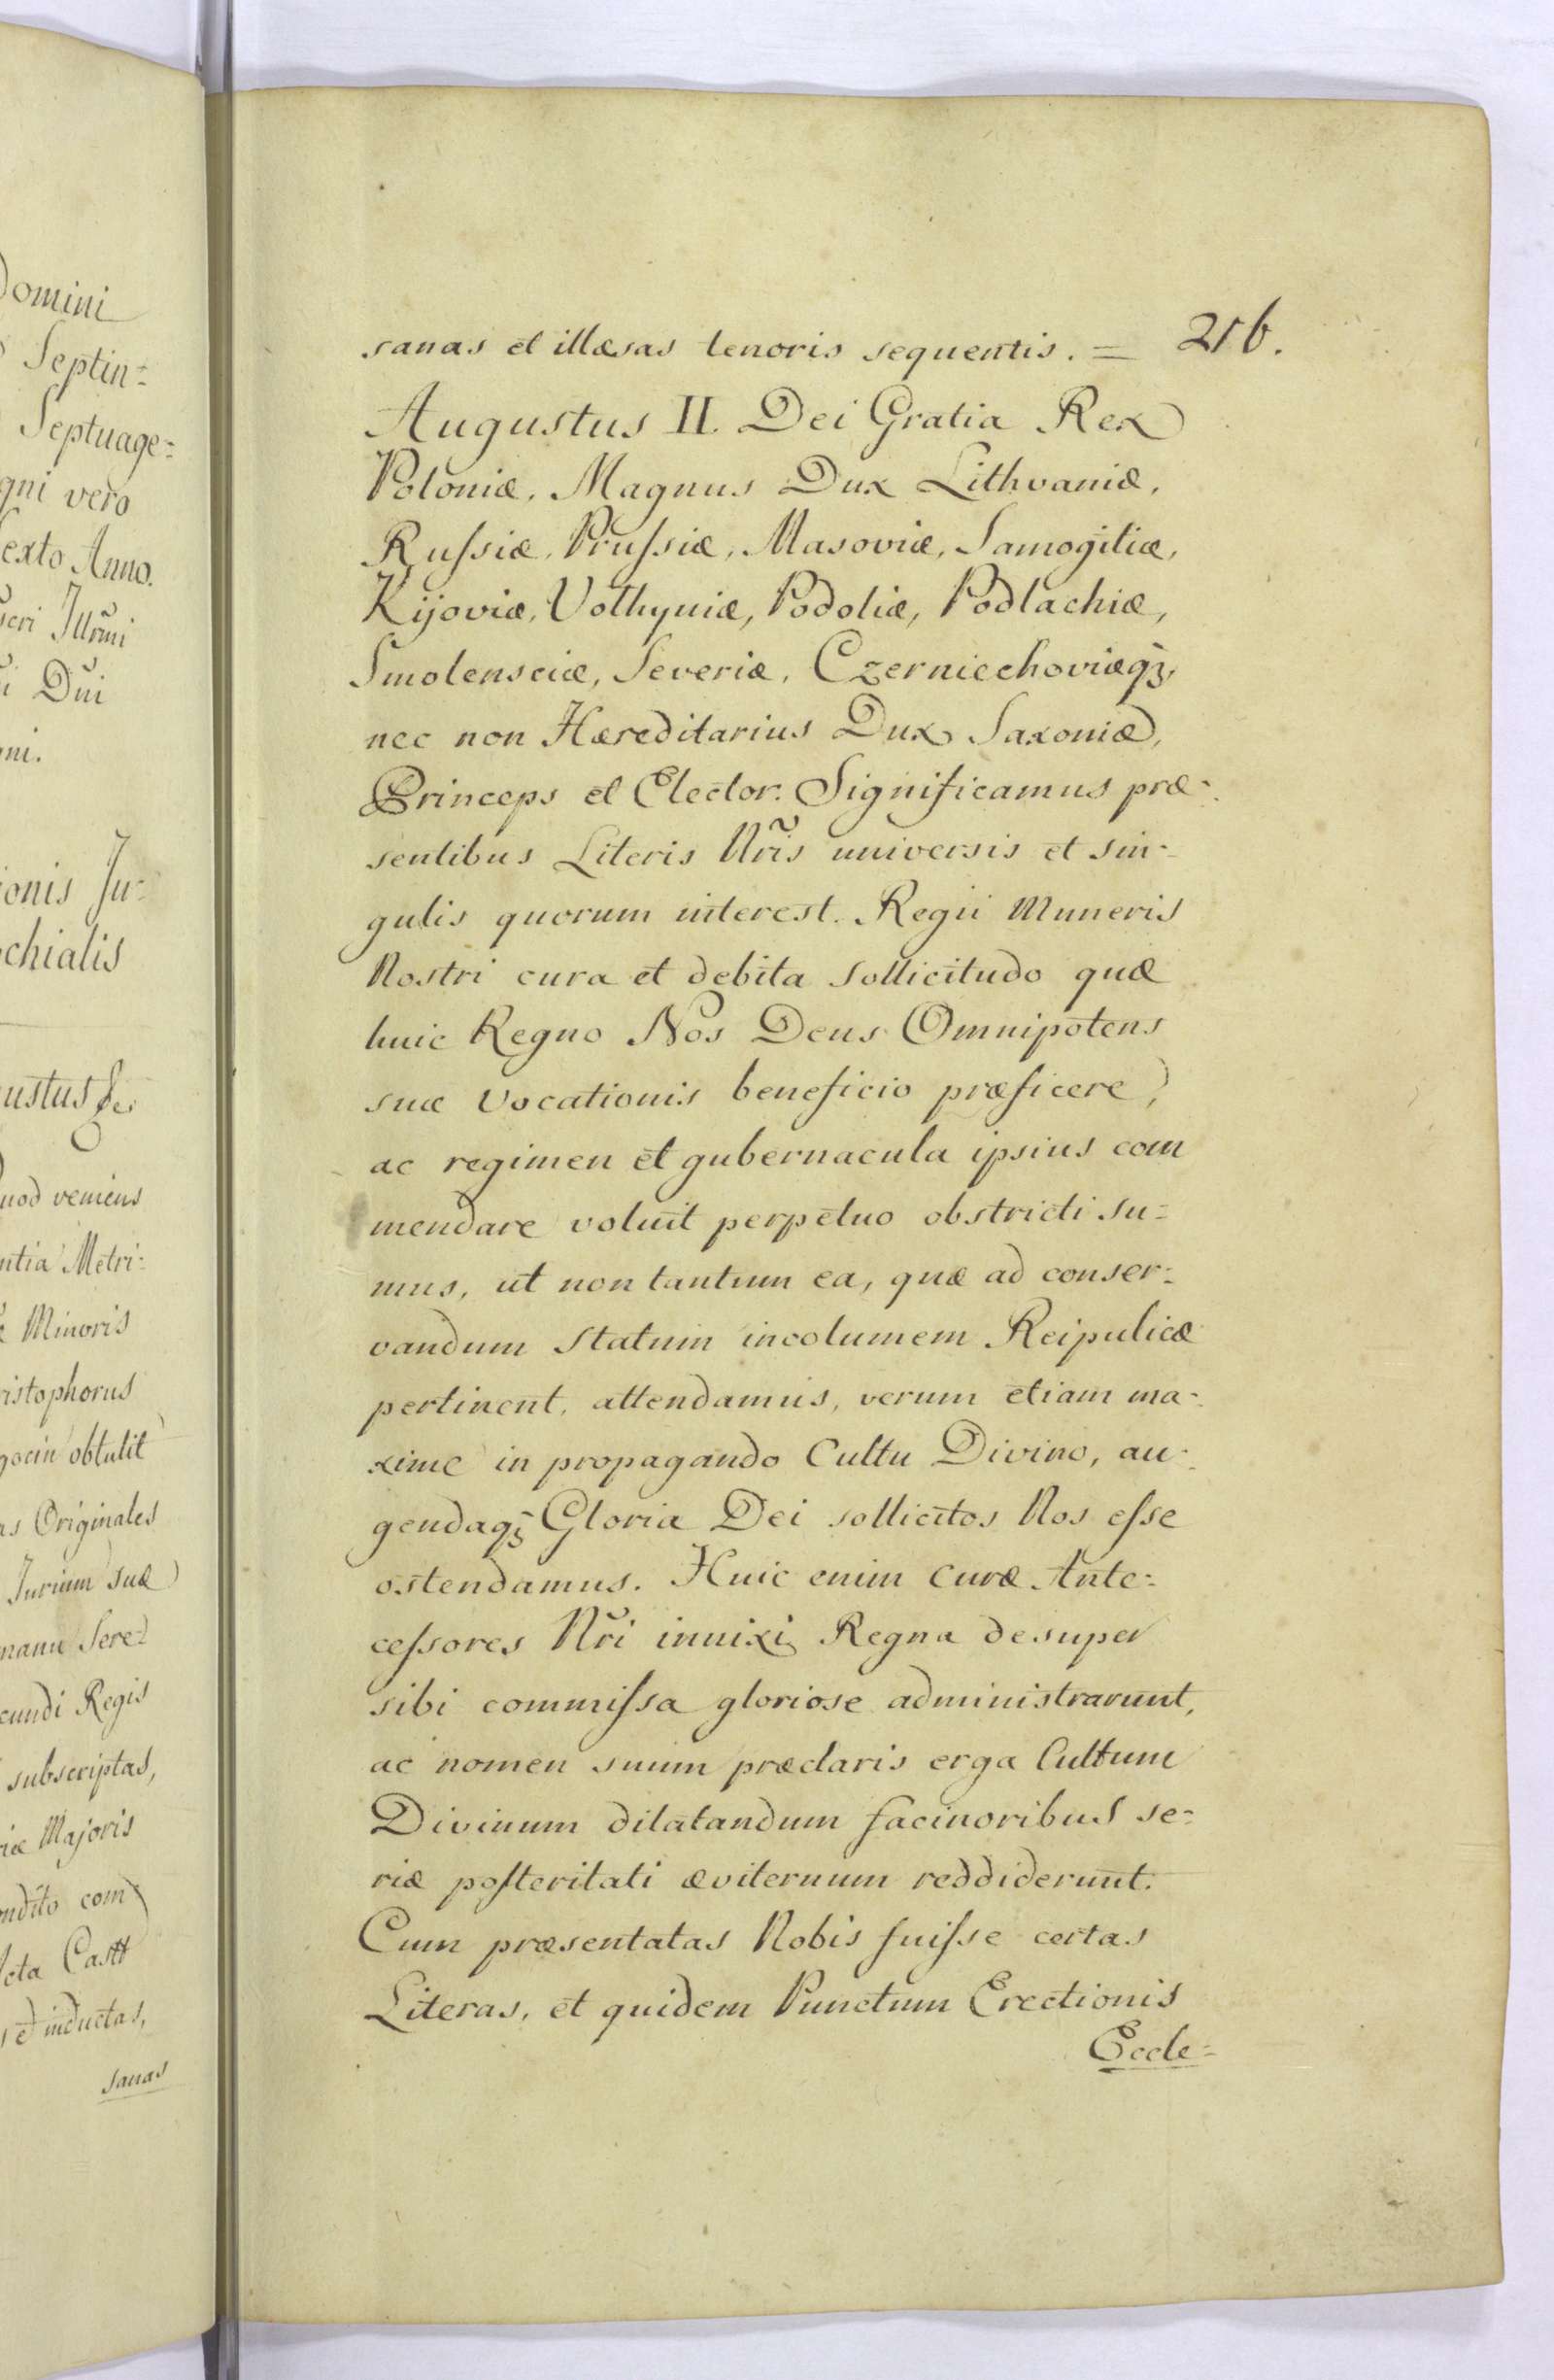 Domini
Septin-
Septuage-
gni vero
Sexto Anno.
Dni
ni.
ionis Ju-
chialis
ustus
uod veniens
ntia Metri-
Minoris
ristophorus
gocin obtulit
as Originales
Jurium suæ
manu Sere-
cundi Regis
subscriptas,
riæ Majoris
ondito com
Acta Castr
inductas,
sanas
216.
sanas et illæsas tenoris sequentis. =
Augustus II. Dei Gratia Rex
Poloniæ, Magnus Dux Lithvaniæ,
Rufsiæ, Prufsiæ, Masoviæ, Samogitiæ,
Kijoviæ, Volhyniæ, Podoliæ, Podlachiæ,
Smolensciæ, Severiæ, Czerniechoviæq̃,
nec non Hæreditarius Dux Saxoniæ,
Princeps et Elector. Significamus præ-
sentibus Literis Nr̃is universis et sin-
gulis quorum interest. Regii Muneris
Nostri cura et debita sollicitudo quæ
huic Regno Nos Deus Omnipotens
suæ vocationis beneficio præficere,
ac regimen et gubernacula ipsius com
mendare voluit perpetuo obstricti su-
mus, ut non tantum ea, quæ ad conser-
vandum statum incolumem Reipulicæ
pertinent, attendamus, verum etiam ma-
xime in propagando Cultu Divino, au-
gendaq̃ Gloria Dei sollicitos Nos efse
ostendamus. Huic enim curæ Ante-
cefsores Nr̃i innixi Regna desuper
sibi commifsa gloriose administrarunt,
ac nomen suum præclaris erga Cultum
Divinum dilatandum facinoribus se-
riæ posteritati æviternum reddiderunt.
Cum præsentatas Nobis fuifse certas
Literas, et quidem Punctum Erectionis
Eccle-